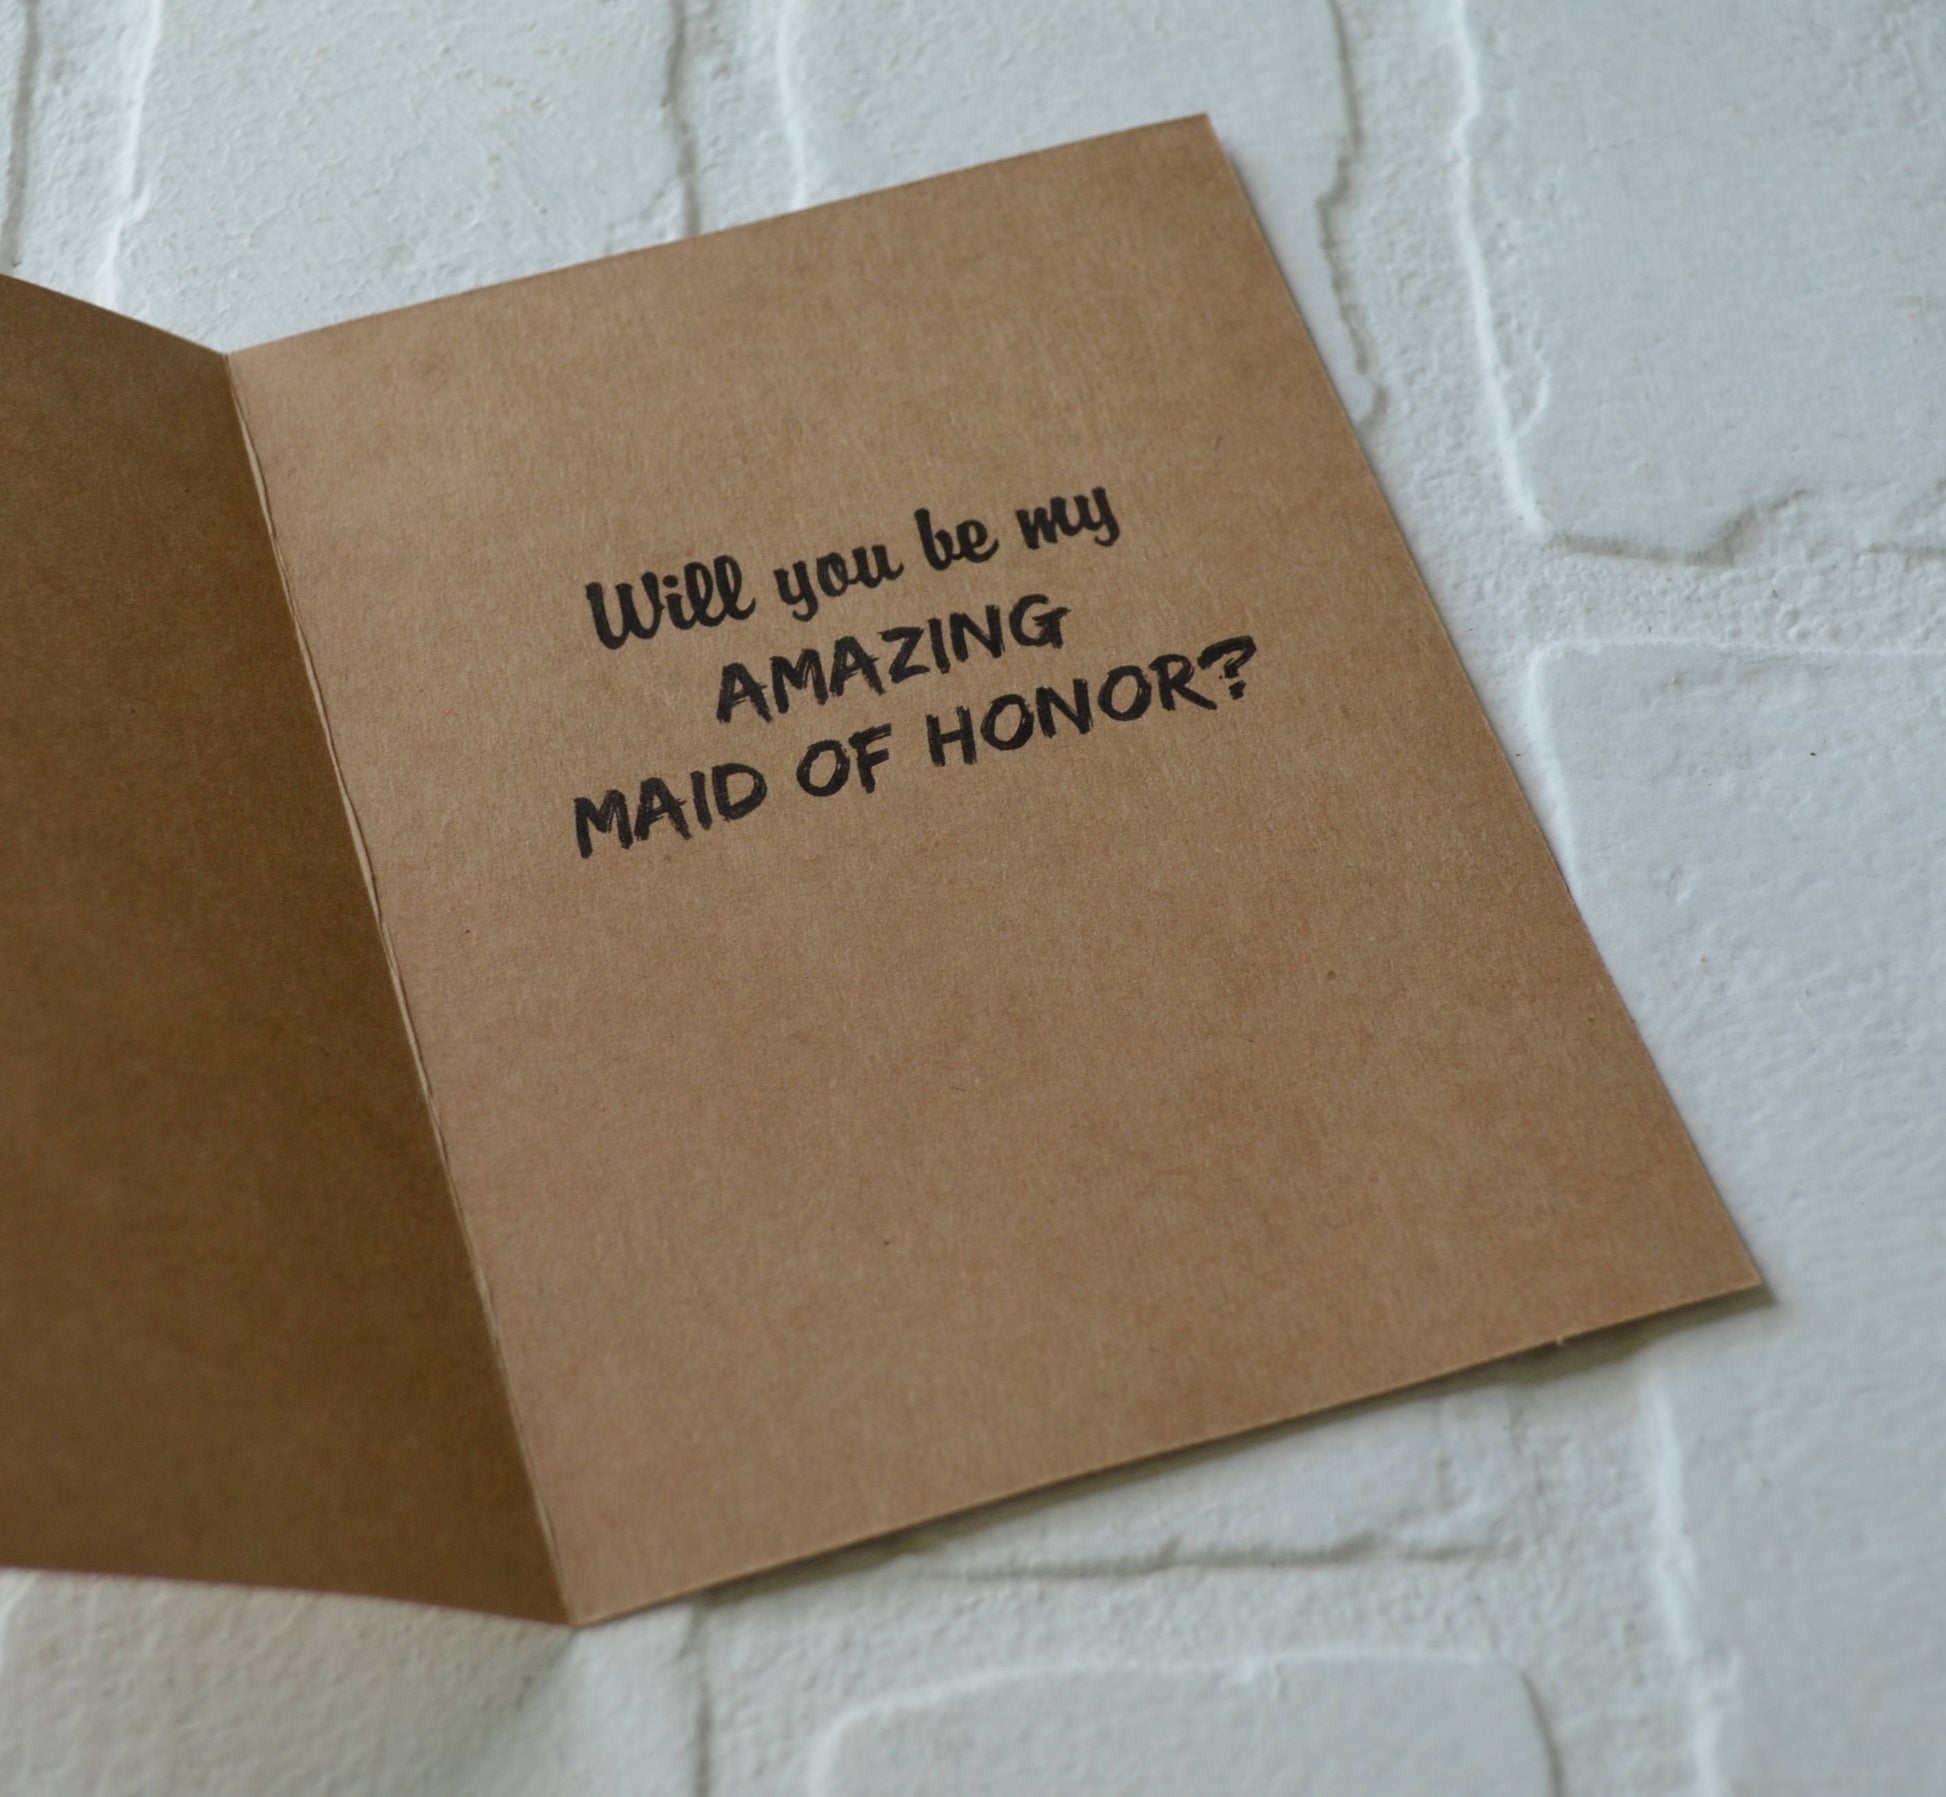 Will you be my
AMAZING
MAID OF HONOR?